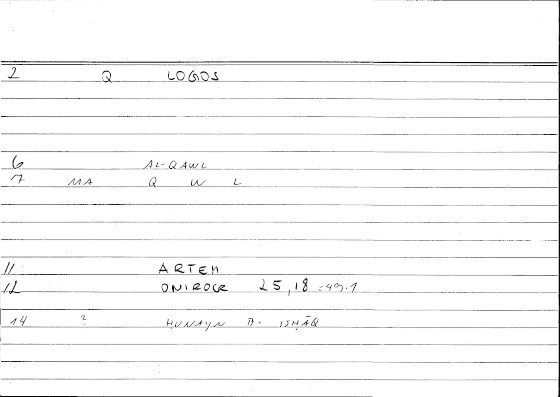 2 Q LOGOS
6 AL-QAWL
7 MA Q W L
11 ARTEM
12 ONIROCR 25,18 = 49.1
14 ? HUNAYN B. ISHĀQ